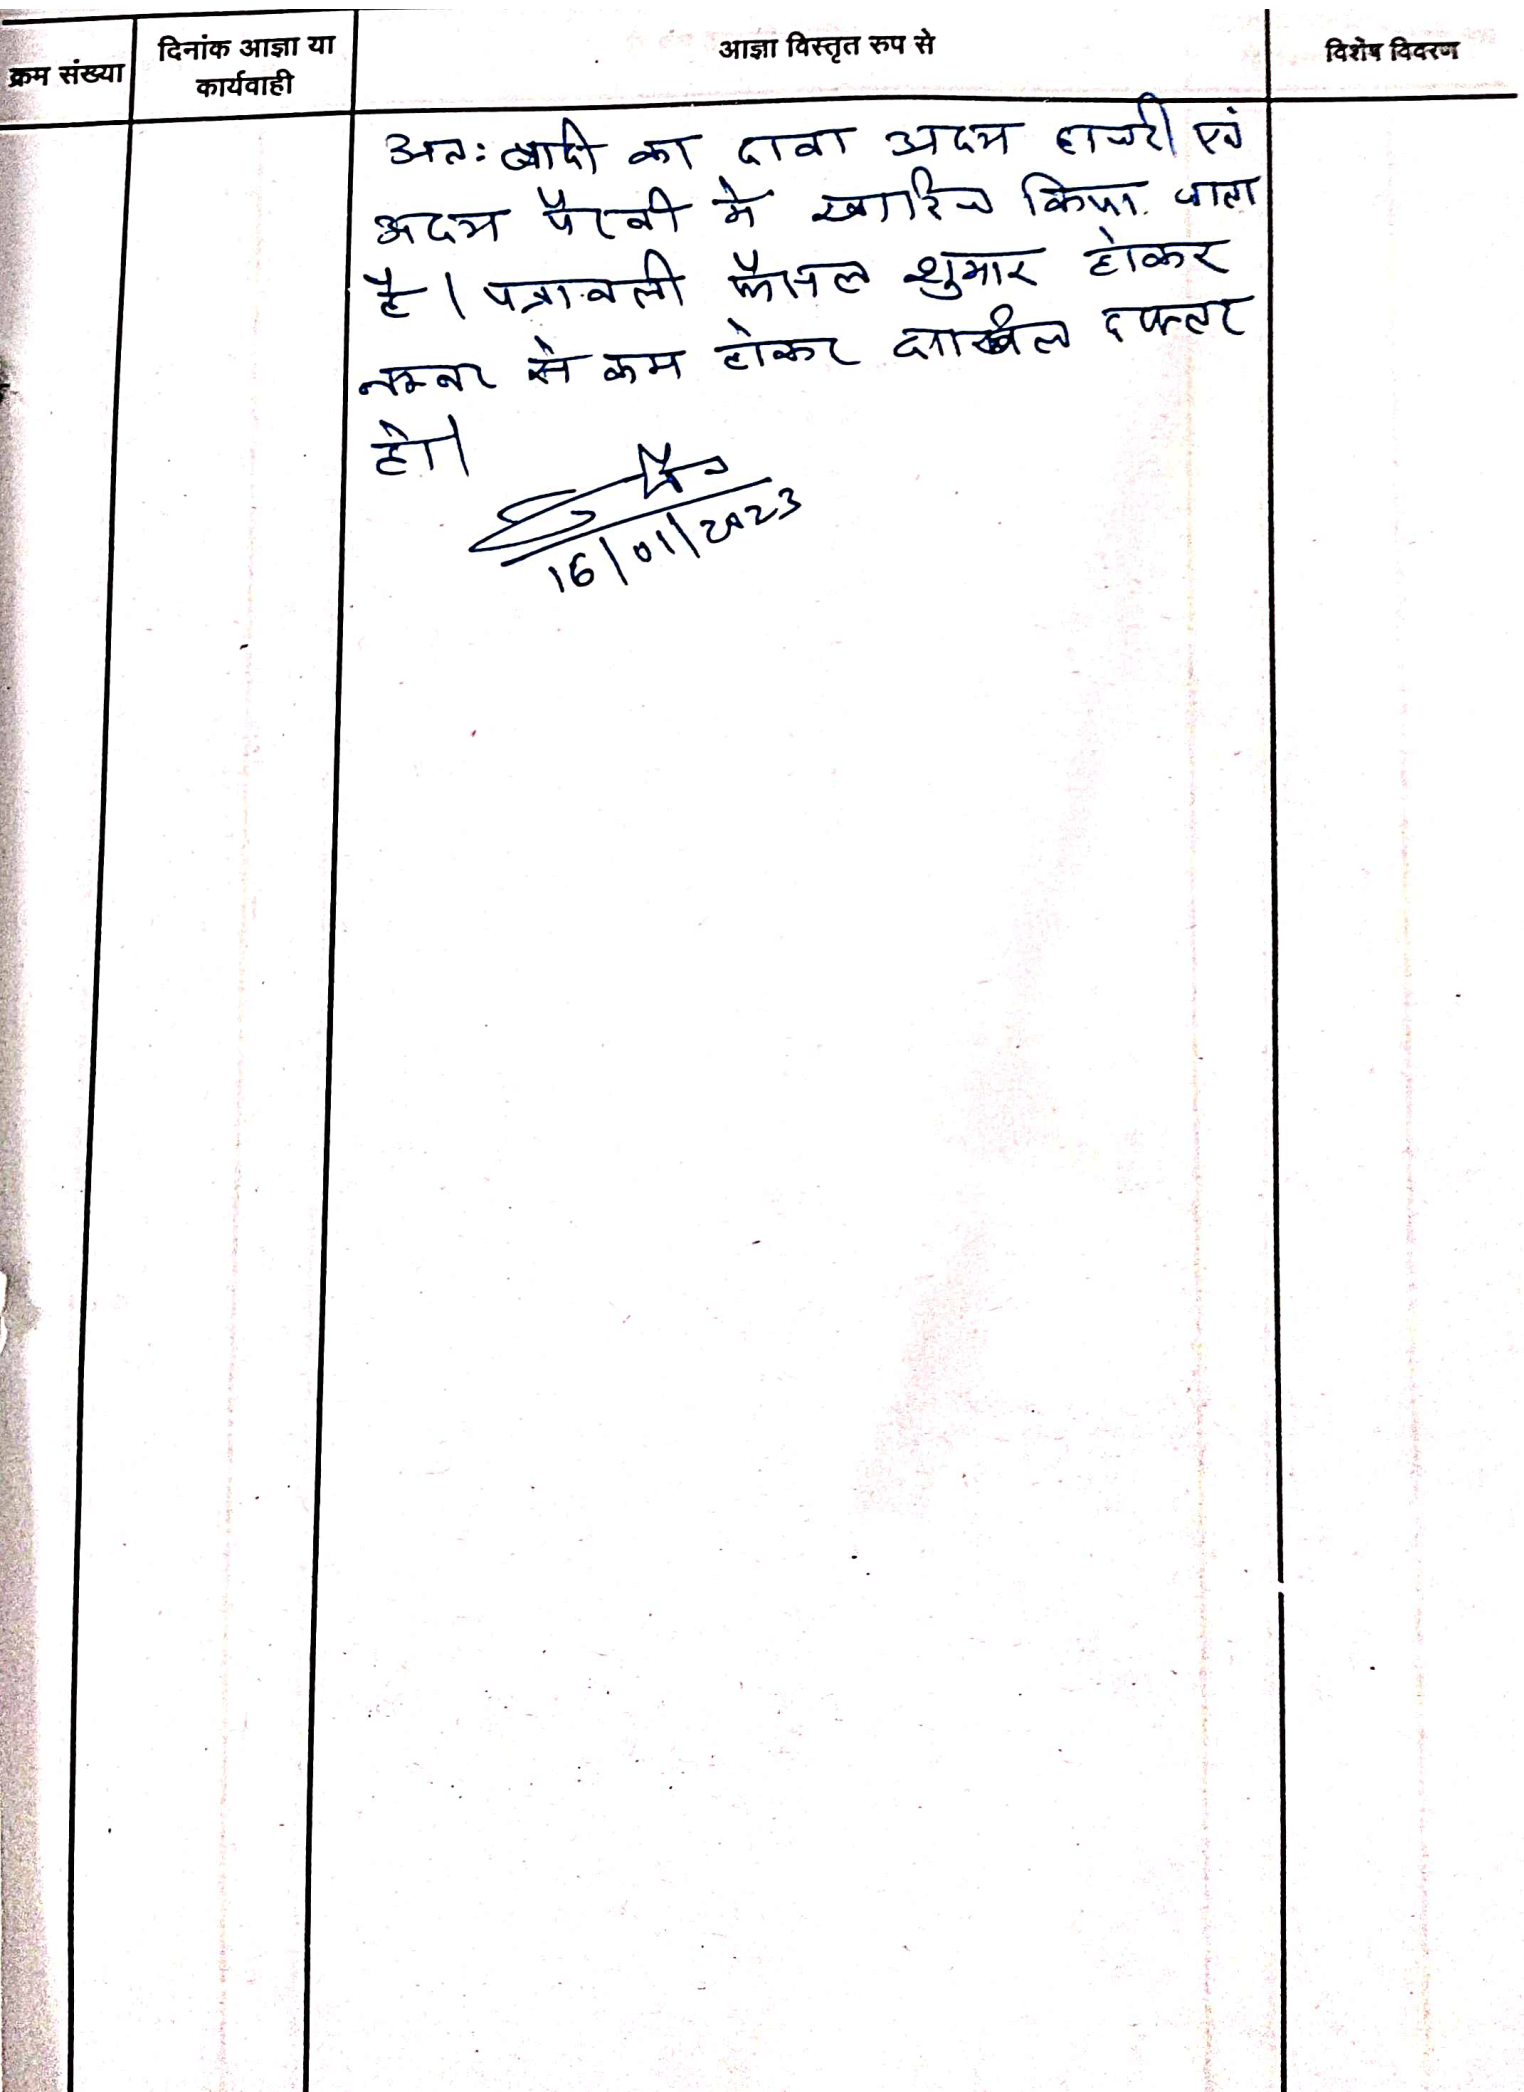 क्रम संख्या
दिनांक आज्ञा या
कार्यवाही
आज्ञा विस्तृत रुप से
विशेष विवरण
अतः वादी का दावा अदम हाजरी एवं
अदम पैरवी मे खारिज किया जाता
है। पत्रावली फैसल शुमार होकर
नम्बर से कम होकर दाखिल दफ्तर
हो।
16/01/2023